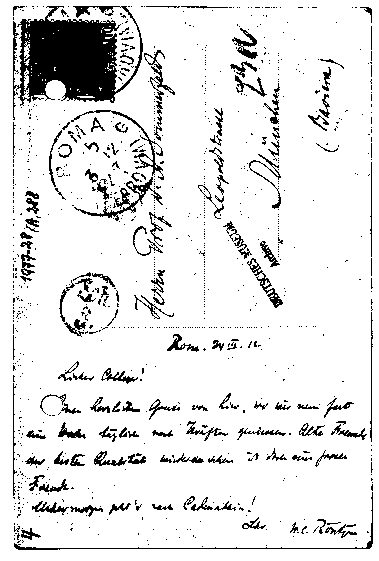 ROMA
5
12
1977-28/A,288
Herrn Prof. A. Sommerfeld
Leopoldstrasse
München
(Baviera)
DEUTSCHES MUSEUM
Archiv
Rom. 24 III. 12.
Lieber College!
Ihnen herzlichen Gruss von hier, wo wir nun fast
eine Woche nach geniessen. Alte Freunde
der besten Qualität wiederzusehen ist doch eine grosse
Freude.
Uebermorgen geht's nach Cadenabbia!
Ihr W. C. Röntgen
4